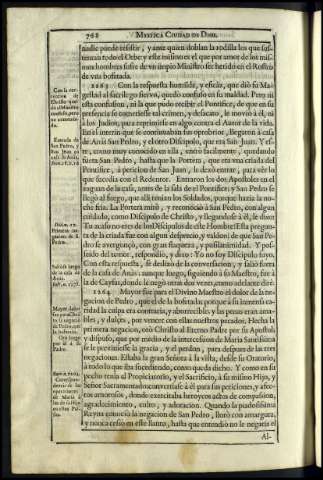 768
MYSTICA CIUDAD DE DIOS.
nadie puede resistir, y ante quien doblan la rodilla los que sus-
tentan todo el Orbe; y este mismo es el que por amor de los mis-
mos hombres sufre de un impio Ministro ser herido en el Rostro
de una bofetada.
1263 Con la respuesta humilde, y eficàz, que diò su Ma-
gestad al sacrilego siervo, quedò confuso en su maldad. Pero ni
esta confusion, ni la que pudo recibir el Pontifice, de que en su
presencia se cometiesse tal crimen, y desacato, le moviò à èl, ni
à los Judios, para reprimirse en algo contra el Autor de la vida.
En el interin que se continuaban sus oprobrios, llegaron à casa
de Anàs San Pedro, y el otro Discipulo, que era San Juan. Y es-
te, como muy conocido en ella, entrò facilmente, quedando
fuera San Pedro, hasta que la Portera, que era una criada del
Pontifice, à peticion de San Juan, le dexò entrar, para vèr lo
que sucedia con el Redentor. Entraron los dos Apostoles en el
zaguan de la casa, antes de la sala del Pontifice; y San Pedro se
llegò al fuego, que alli tenian los Soldados, porque hacia la no-
che fria. La Portera mirò, y reconociò à San Pedro, con algun
cuidado, como Discipulo de Christo, y llegandose à èl, le dixo:
Tu acaso no eres de los Discipulos de este Hombre? Esta pregun-
ta de la criada fue con algun desprecio, y valdon; de que San Pe-
dro se avergonzò, con gran flaqueza, y pusilanimidad. Y pos-
seido del temor, respondiò, y dixo: Yo no soy Discipulo suyo.
Con esta respuesta, se deslizò de la conversacion, y saliò fuera
de la casa de Anàs: aunque luego, siguiendo à su Maestro, fue à
la de Cayfàs, donde le negò otras dos veces, como adelante dirè.
1264 Mayor fue para el Divino Maestro el dolor de la ne-
gacion de Pedro, que el de la bofetada; porque à su inmensa ca-
ridad la culpa era contraria, y aborrecible, y las penas eran ama-
bles, y dulces, por vencer con ellas nuestros pecados. Hecha la
primera negacion, orò Christo al Eterno Padre por su Apostol,
y dispuso, que por medio de la intercession de Maria Santissima
se le previniesse la gracia, y el perdon, para despues de las tres
negaciones. Estaba la gran Señora à la vista, desde su Oratorio,
à todo lo que iba sucediendo, como queda dicho. Y como en su
pecho tenia al Propiciatorio, y el Sacrificio, à su mismo Hijo, y
Señor Sacramentado; convertiase à èl para sus peticiones, y afec-
tos amorosos, donde exercitaba heroycos actos de compassion,
agradecimiento, culto, y adoracion. Quando la piadosissima
Reyna conociò la negacion de San Pedro, llorò con amargura,
y nunca cessò en este llanto, hasta que entendiò no le negaria el
Al-